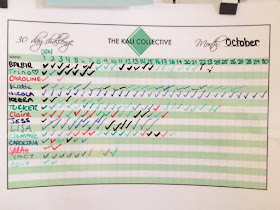 30 day challenge THE KALI COLLECTIVE Month: October
NAME: 1 2 3 4 5 6 7 8 9 10 11 12 13 14 15 16 17 18 19 20 21 22 23 24 25 26 27 28 29 30
Trina♡
CAROLINE
Katie
NICOLA
KEERA
TUCKER
Claire
JESS
LISA
CAROLINA